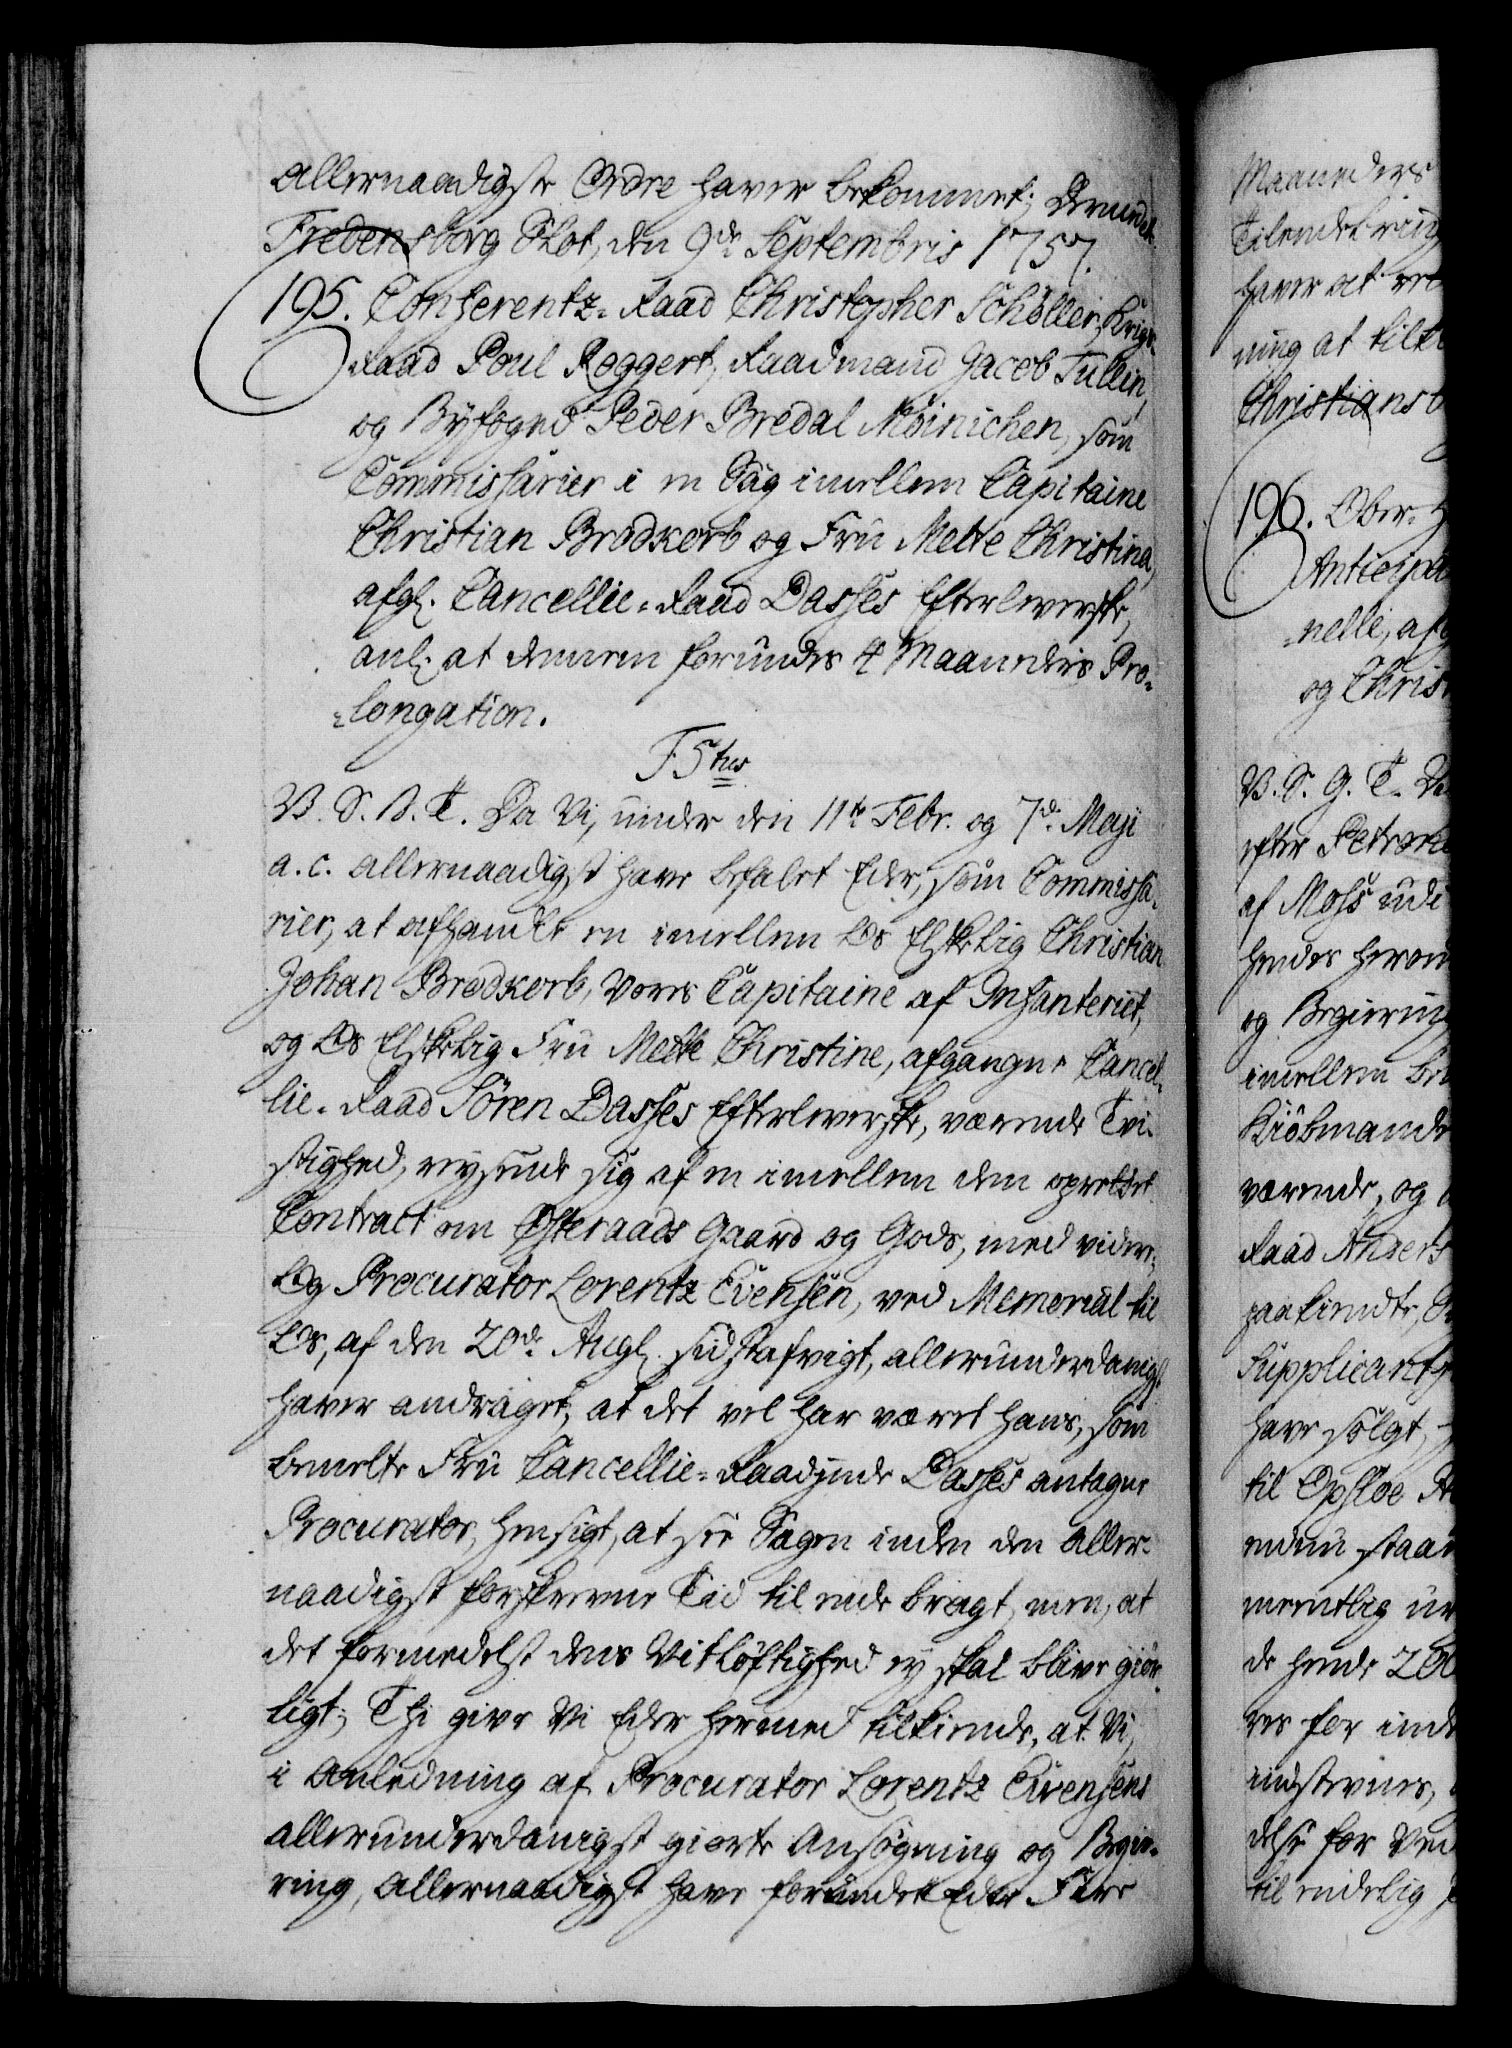 Allernaadigste Ordre haver bekommet; Skrevet
Fredensborg Slot, den 9de Septembris 1757.
195. Conferentz-Raad Christopher Schöller, Krigs-
Raad Poul Roggert, Raadmand Jacob Tullin,
og Byfoged Peder Bredal Möinichen, som
Commissarier i en Sag imellem Capitaine
Christian Brodkorb og Fru Mette Christina,
afg. Cancellie-Raad Dasses Efterleverske,
anl. at dennem forundes 4 Maaneders Pro-
longation.
F 5tus
V. S. G. T. Da Vi, under den 11te Febr. og 7de Maji
a. c. allernaadigst have befalet Eder, som Commissa-
rier, at afhandle en imellem Os Elskelig Christian
Johan Brodkorb, Vores Capitaine af Infanteriet,
og Os Elskelig Fru Mette Christine, afgangne Cancel-
lie-Raad Sören Dasses Efterleverske, værende Tvi-
stighed, reysende sig af en imellem dem oprettet
Contract om Østeraads Gaard og Gods, med videre;
Og Procurator Lorentz Evensen, ved Memorial til
Os, af den 20de Aug. sidstafvigt, allerunderdanigst
haver andraget, at det vel har været hans, som
bemelte Fru Cancellie-Raadinde Dasses antagne
Procurator, Hensigt, at see Sagen inden den aller-
naadigst forskrevne Tid til ende bragt, men, at
det formedelst dens Vitløftighed ey skal blive giør-
ligt; Thi give Vi Eder hermed tilkiende, at Vi,
i Anledning af Procurator Lorentz Evensens
allerunderdanigst giorte Ansøgning og Begie-
ring, Allernaadigst have forundt Eder Fiire
Maaneders
haver at
ning at
Christiansb
196. Ober-
nelle, afg
og Chris
V. S. G. T.
efter
af Moss udi
hendes
og Begiering
imellem
Kiöbmand
værende, og
Raad Anders
paakiendte,
Supplicant
have solgt,
til Opsloe
endnu staa
de hende 200
res for
til endelig